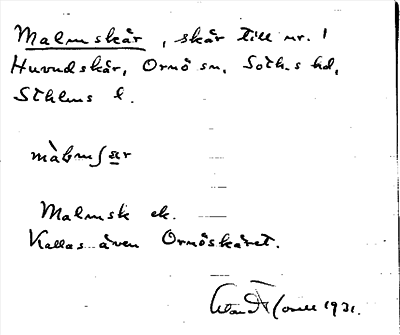 Malmskär, skär till nr. 1
Huvudskär, Ornö sn, Soth.s hd,
Sthlms l.
màlmʃær
Malmsk ek.
Kallas även Ornöskäret.
1931.